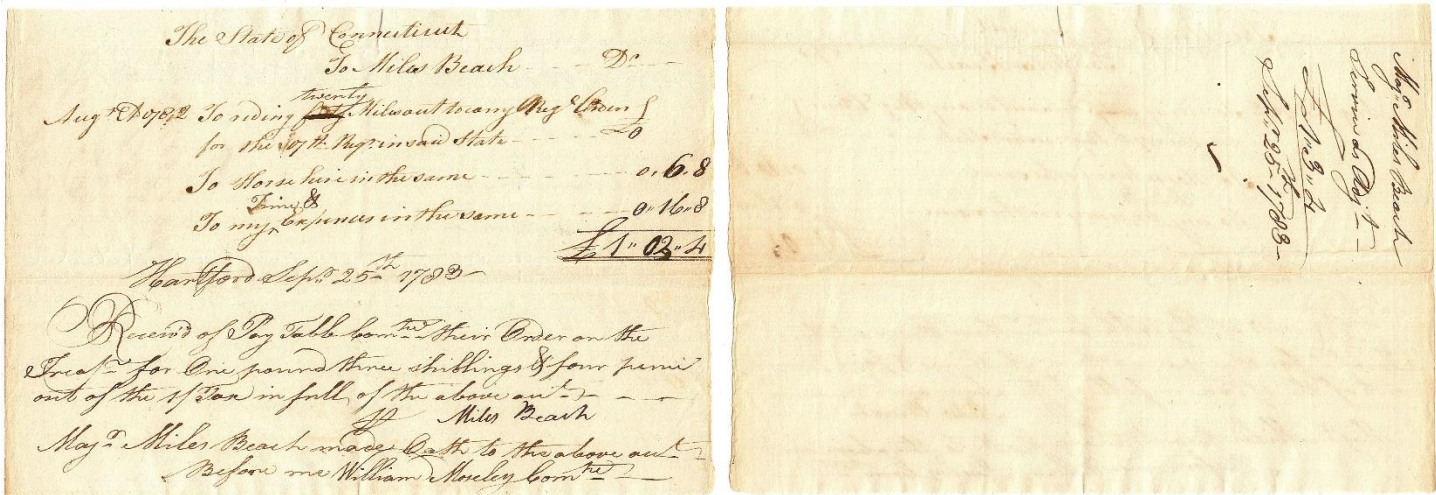 The State of Connecticut
To Miles Beach - - - - Dr - - -
twenty
Augt 1782 To riding Miles out to carry Regl Orders
for the 17th Regt in said State - - - - 0
To Horse hire in the same - - - - 0,, 6,, 8
Time &
To my Expences in the same - - - - 0,, 16,, 8
£ 1,, 03,, 4
Hartford Sepr 25th 1783 -
Receivd of Pay Table Comtee their Order on the
Treasr for One pound three shillings & four penie
out of the 1/ Tax in full of the above acct - - - -
Miles Beach
Majr Miles Beach made Oath to the above acct
Before me William Moseley Comtee
Majr Miles Beach
Services as Adjt
£ 1,, 3,, 4
Sepr 25th 1783 -